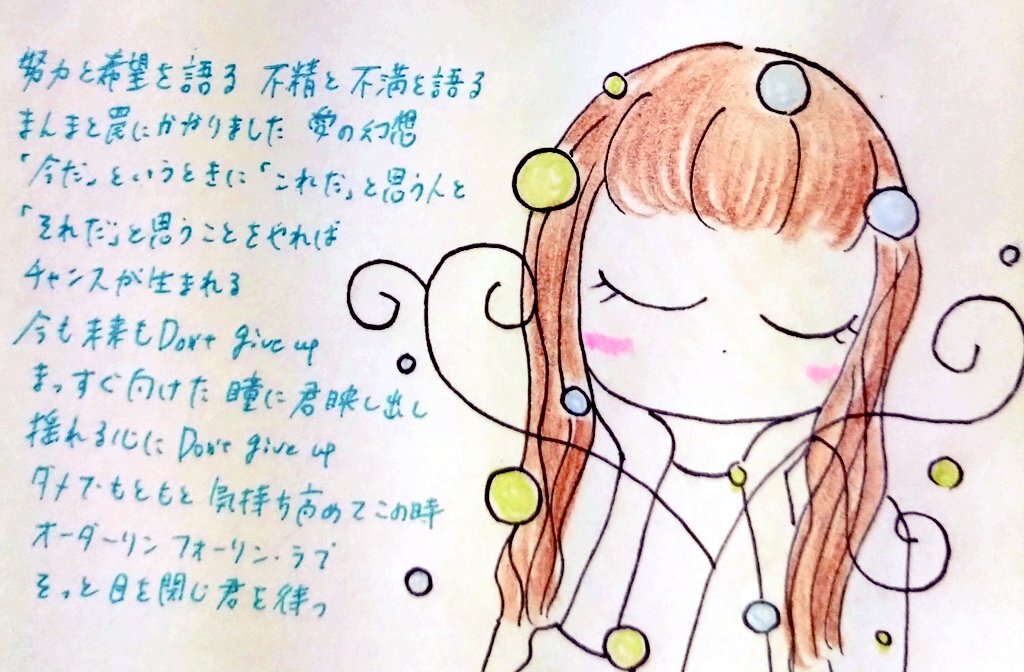 努力と希望を語る 不精と不満を語る
まんまと罠にかかりました 愛の幻想
「今だ」というときに「これだ」と思う人と
「それだ」と思うことをやれば
チャンスが生まれる
今も未来も Don't give up
まっすぐ向けた 瞳に君映し出し
揺れる心に Don't give up
ダメでもともと 気持ち高めてこの時
オーダーリン フォーリン・ラブ
そっと目を閉じ君を待つ